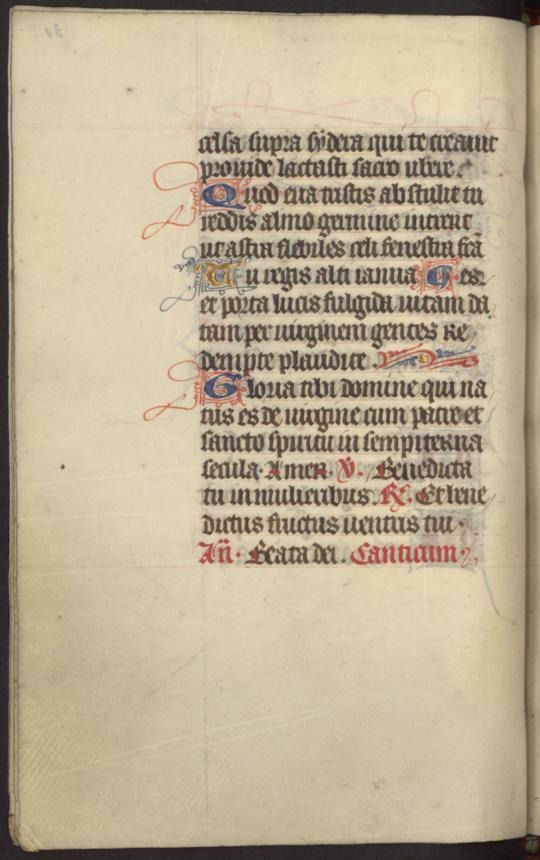 celsa supra sydera qui te creavit
provide lactasti sacro ubere.
Quod eva tristis abstulit tu
reddis almo germine intrent
ut astra flebiles celi fenestra fca
Tu regis alti ianua Ges
et porta lucis fulgida vitam da
tam per virginem gentes Re
dempte plaudite.
Gloria tibi domine qui na
tus es de virgine cum patre et
sancto spiritu in sempiterna
secula. Amen. V. Benedicta
tu in mulieribus. R. Et bene
dictus fructus ventris tui.
Añ. Beata dei. Canticum.